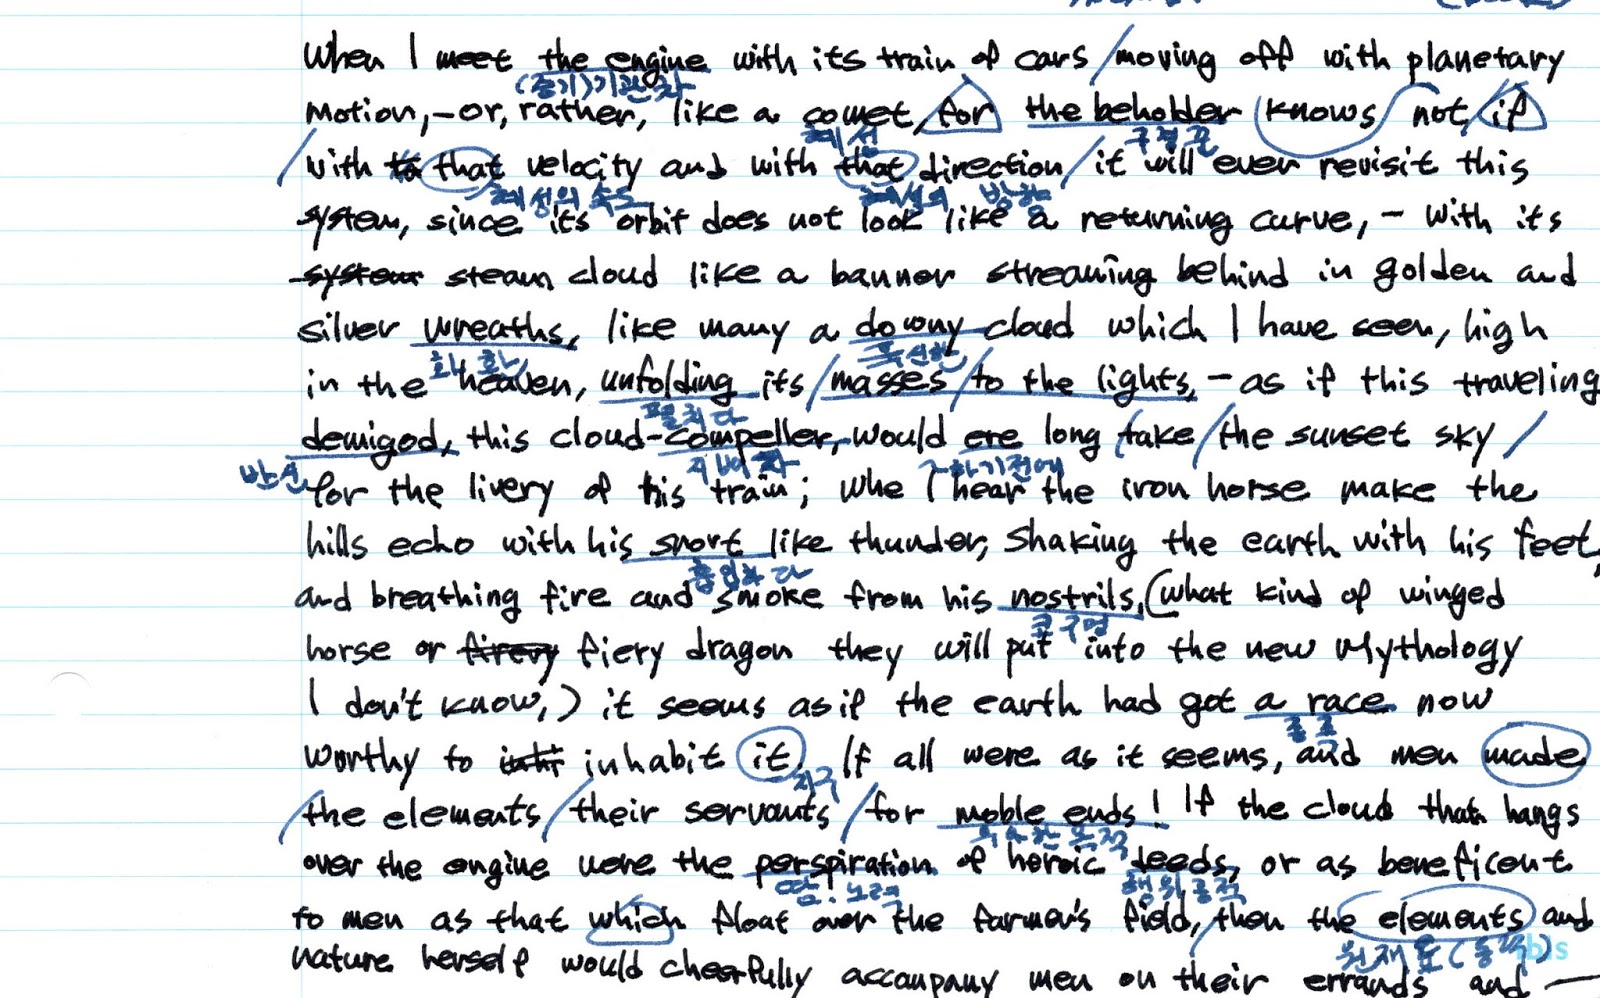 When I meet the engine with its train of cars / moving off with planetary
(증기)기관차
motion, - or, rather, like a comet, for the beholder (knows not, if
혜성 구경꾼
with that velocity and with that direction / it will ever revisit this
혜성의 속도 혜성의 방향
system, since its orbit does not look like a returning curve, - with its
system steam cloud like a banner streaming behind in golden and
silver wreaths, like many a downy cloud which I have seen, high
화환 폭신한
in the heaven, unfolding its / masses / to the lights, - as if this traveling
펼치다
demigod, this cloud-compeller, would ere long / take / the sunset sky /
반신 지배자 하기전에
for the livery of his train; whe I hear the iron horse make the
hills echo with his snort like thunder, shaking the earth with his feet,
흡입하다
and breathing fire and smoke from his nostrils, (what kind of winged
콧구멍
horse or firevy fiery dragon they will put into the new Mythology
I don't know,) it seems as if the earth had got a race now
종족
worthy to inhabit it. If all were as it seems, and men made
지구
/ the elements / their servants / for moble ends! If the cloud that hangs
over the engine were the perspiration of heroic deeds, or as beneficent
땀. 노력 행위, 공적
to men as that which float over the farmer's field, then the elements and
원재료 (동력)
nature herself would cheerfully accompany men on their errands and —